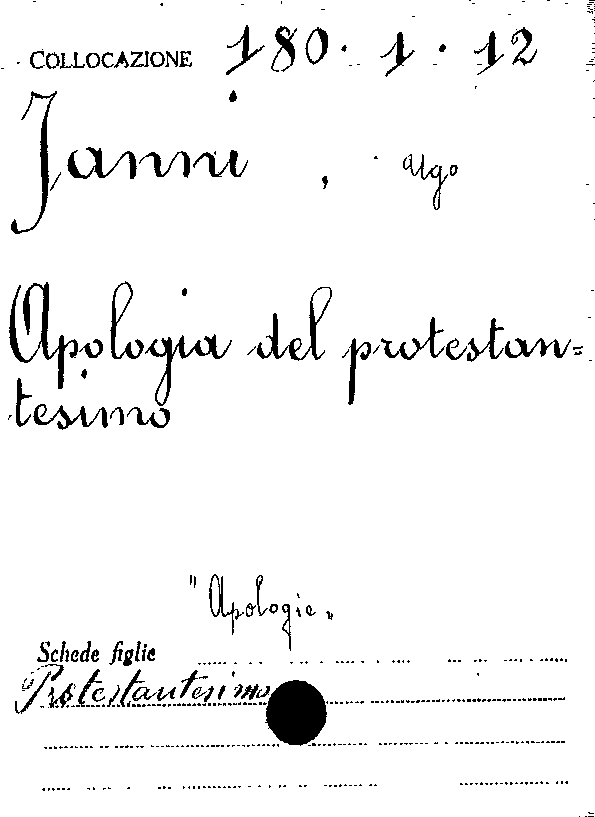 COLLOCAZIONE 180. 1. 12
Janni, Ugo
Apologia del protestan=
tesimo
"Apologie"
Schede figlie
Protestantesimo